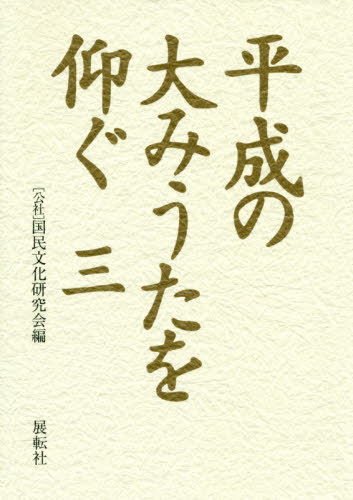 平成の
大みうたを
仰ぐ 三
[公社]国民文化研究会編
展転社